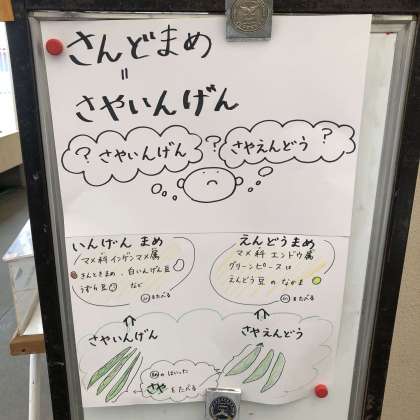 さんどまめ
=
さやいんげん
? さやいんげん
?
さやえんどう ?
いんげん まめ
マメ科 インゲンマメ属
きんときまめ、白いんげん豆
うずら豆 など
をたべる
えんどうまめ
マメ科 エンドウ属
グリーンピースは
えんどう豆 の なかま
をたべる
さやいんげん
さやえんどう
の はいった
さや をたべる